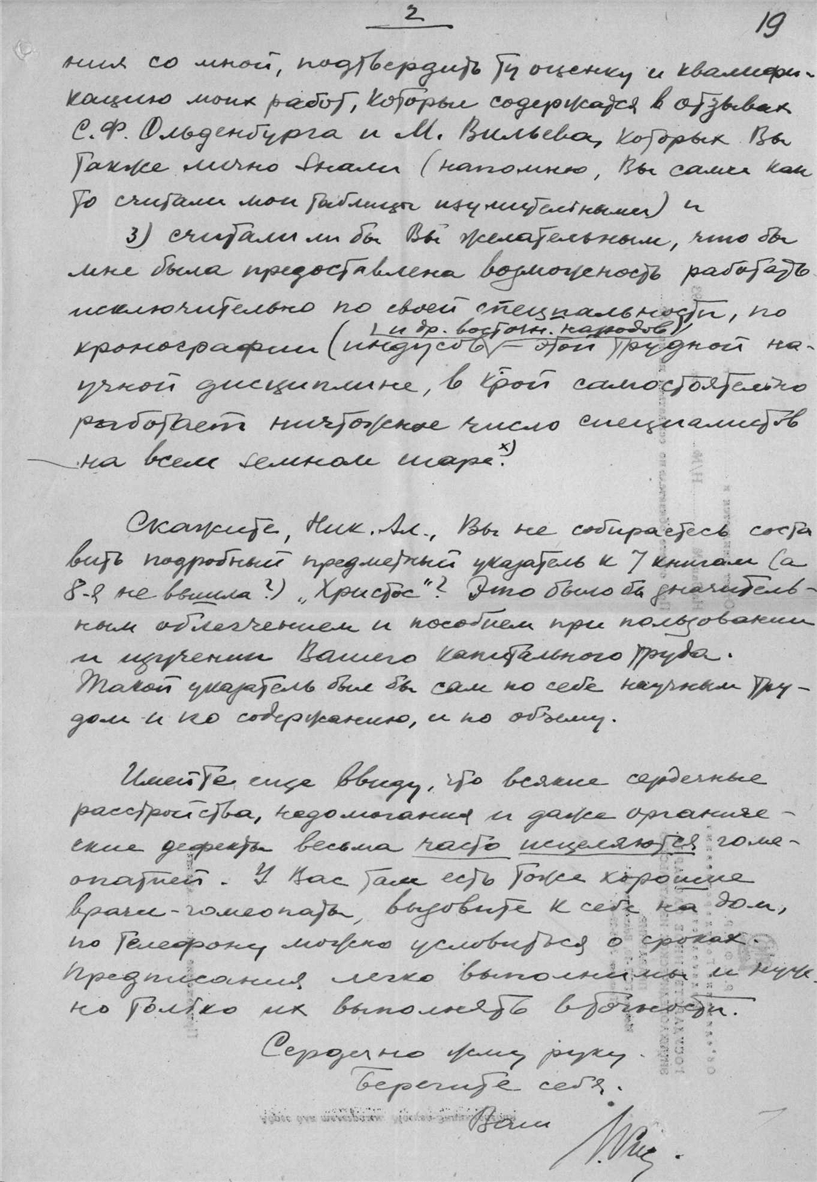 2
19
ния со мной, подтвердить ту оценку и квалифи-
кацию моих работ, которые содержатся в отзывах
С.Ф. Ольденбурга и М. Вильева, которых Вы
также лично знали (напомню, Вы сами как
то считали мои таблицы изумительными) и
3) считали ли бы Вы желательным, что бы
мне была предоставлена возможность работать
исключительно по своей специальности, по
и др. восточн. народов
хронографии (индусов) – этой трудной на-
учной дисциплине, в к-рой самостоятельно
работает ничтожное число специалистов
на всем земном шаре.х)
Скажите, Ник. Ал., Вы не собираетесь соста
вить подробный предметный указатель к 7 книгам (а
8-я не вышла?) „Христос"? Это было бы значитель-
ным облегчением и пособием при пользовании
и изучении Вашего капитального труда.
Такой указатель был бы сам по себе научным тру-
дом и по содержанию, и по объему.
Имейте еще ввиду, что всякие сердечные
расстройства, недомогания и даже органиче-
ские дефекты весьма часто исцеляются гоме-
опатией. У Вас там есть тоже хорошие
врачи-гомеопаты, вызовите к себе на дом,
по телефону можно условиться о сроках.
Предписания легко выполнимы и нуж-
но только их выполнять в точности.
Сердечно жму руку.
Берегите себя.
Ваш